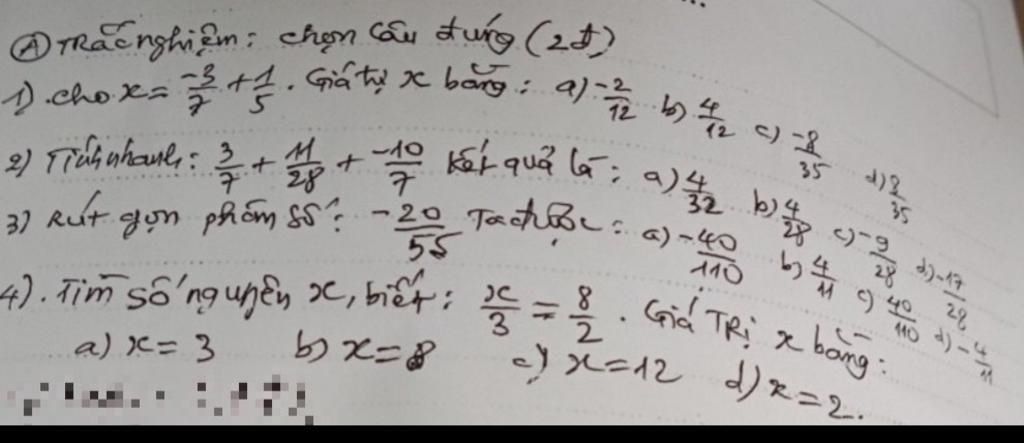 Ⓐ Trắc nghiệm: chọn câu đúng (2đ)
1) cho x = -3/7 + 1/5. Giá trị x bằng: a) -2/12 b) 4/12 c) -8/35 d) 8/35
2) Tính nhanh: 3/7 + 11/28 + -10/7 kết quả là: a) 4/32 b) 4/28 c) -9/28 d) -17/28
3) Rút gọn phâm số: -20/55 Ta được: a) -40/110 b) 4/11 c) 40/110 d) -4/11
4). Tìm số nguyên x, biết: x/3 = 8/2. Giá TRị x bằng:
a) x = 3 b) x = 8 c) x = 12 d) x = 2.